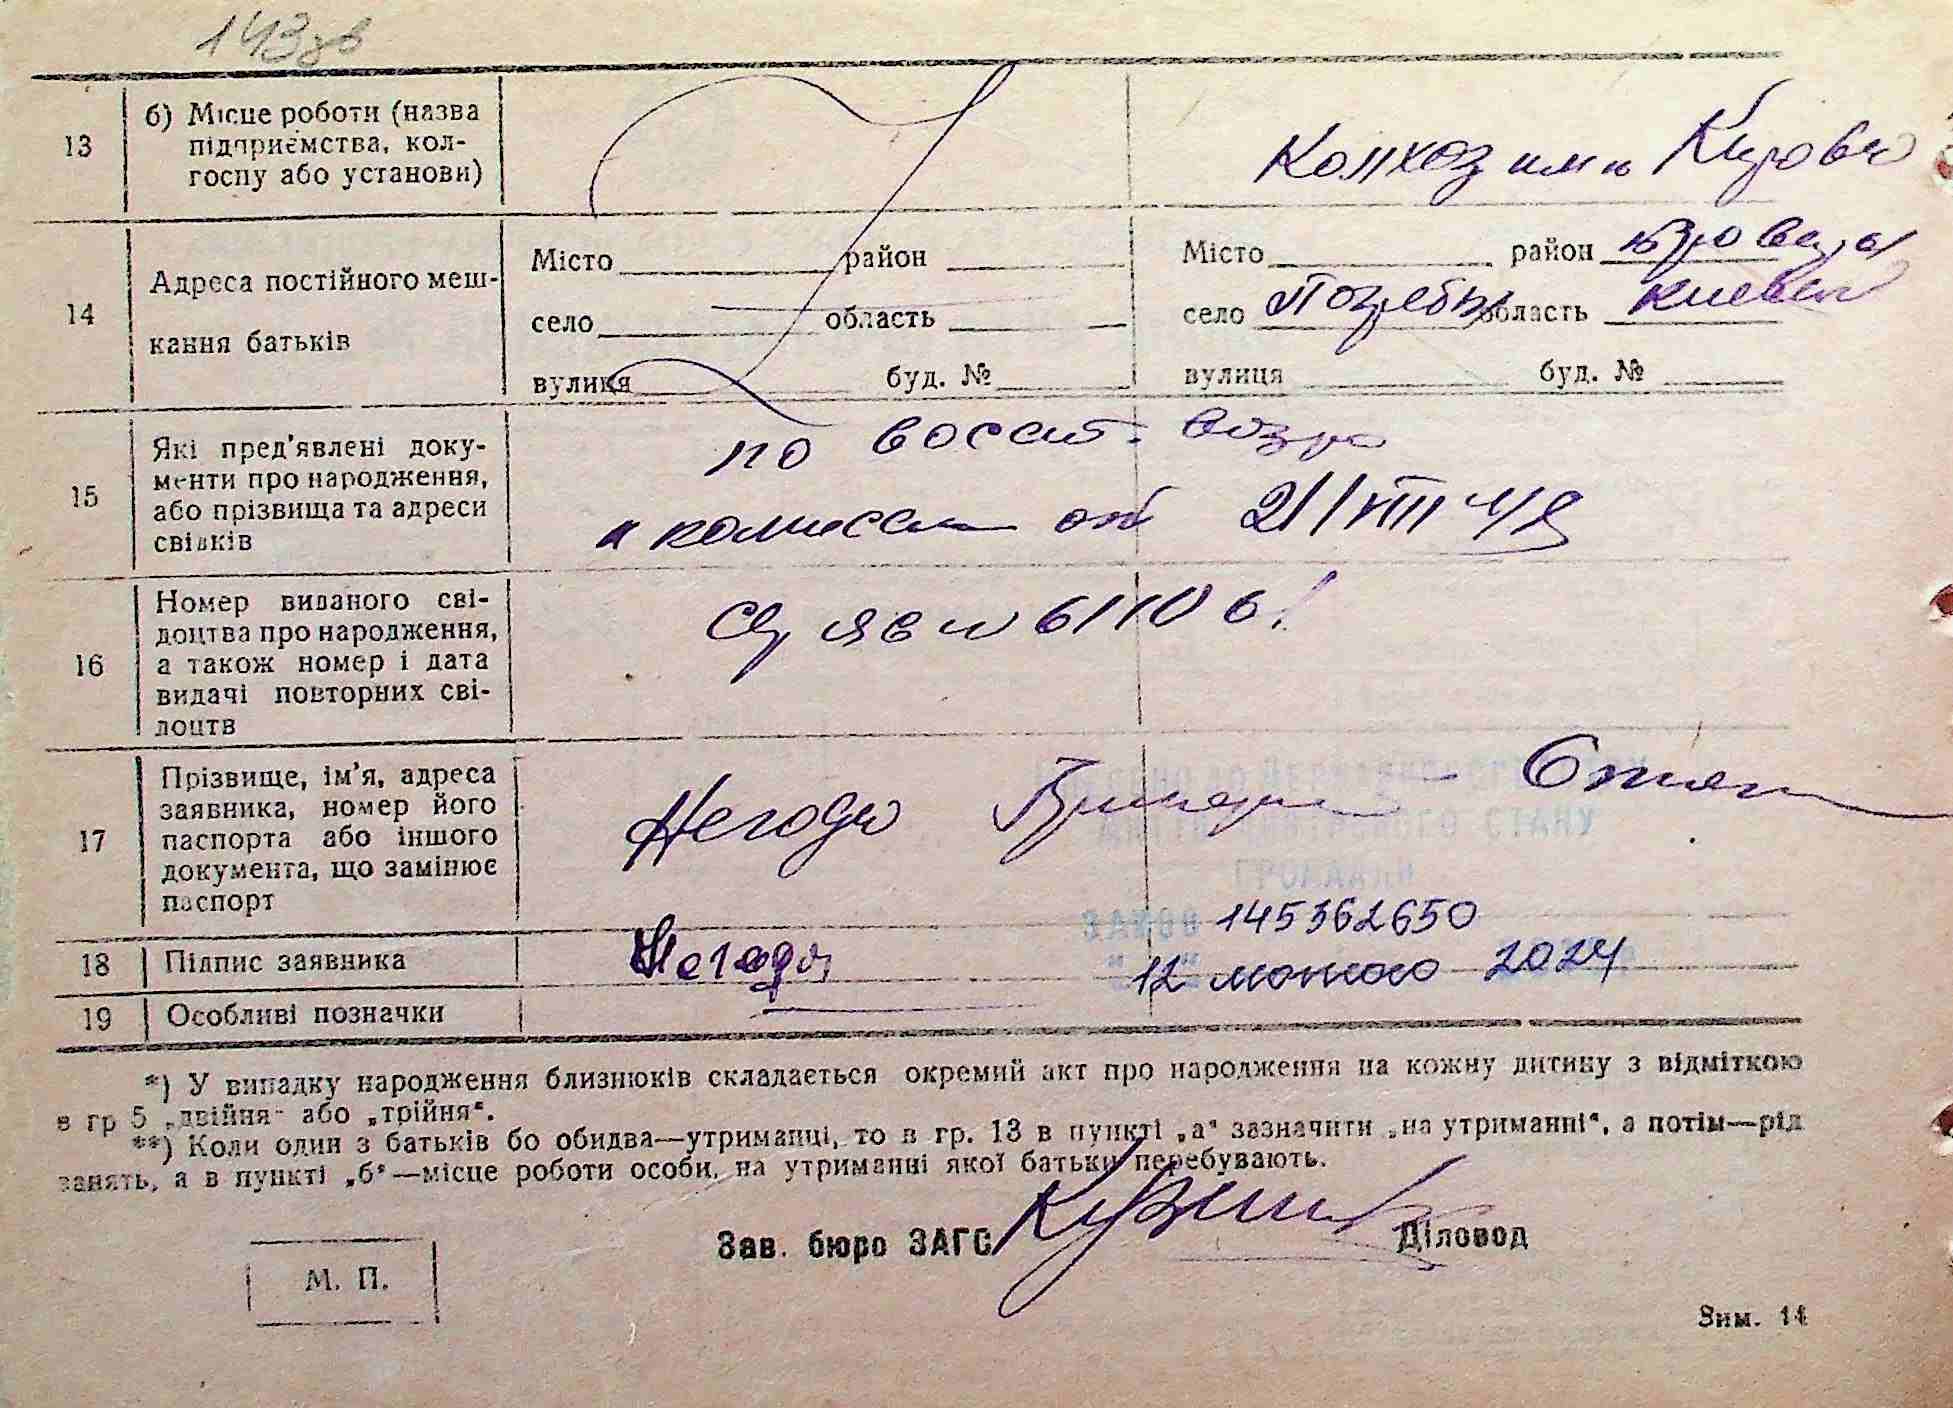 143зв
13
б) Місце роботи (назва
підприємства, кол-
госпу або установи)
Колхоз им. Кирова
14
Адреса постійного меш-
кання батьків
Місто район
село область
вулиця буд. №
Місто район Бровар
село Погребы область Киевск
вулиця буд. №
15
Які пред'явлені доку-
менти про народження,
або прізвища та адреси
свідків
по восст.
от 21/VIII
16
Номер виданого сві-
доцтва про народження,
а також номер і дата
видачі повторних сві-
доцтв
17
Прізвище, ім'я, адреса
заявника, номер його
паспорта або іншого
документа, що замінює
паспорт
Негода
СТАНУ
ГРОМАДЯН
145362650
18
Підпис заявника
Негода
12 лютого 2024
19
Особливі позначки
*) У випадку народження близнюків складається окремий акт про народження на кожну дитину з відміткою
в гр 5 „двійня" або „трійня".
**) Коли один з батьків бо обидва—утриманці, то в гр. 13 в пункті „а" зазначити „на утриманні", а потім—рід
занять, а в пункті „б"—місце роботи особи, на утриманні якої батьки перебувають.
Зав. бюро ЗАГС
Діловод
М. П.
Зим. 14